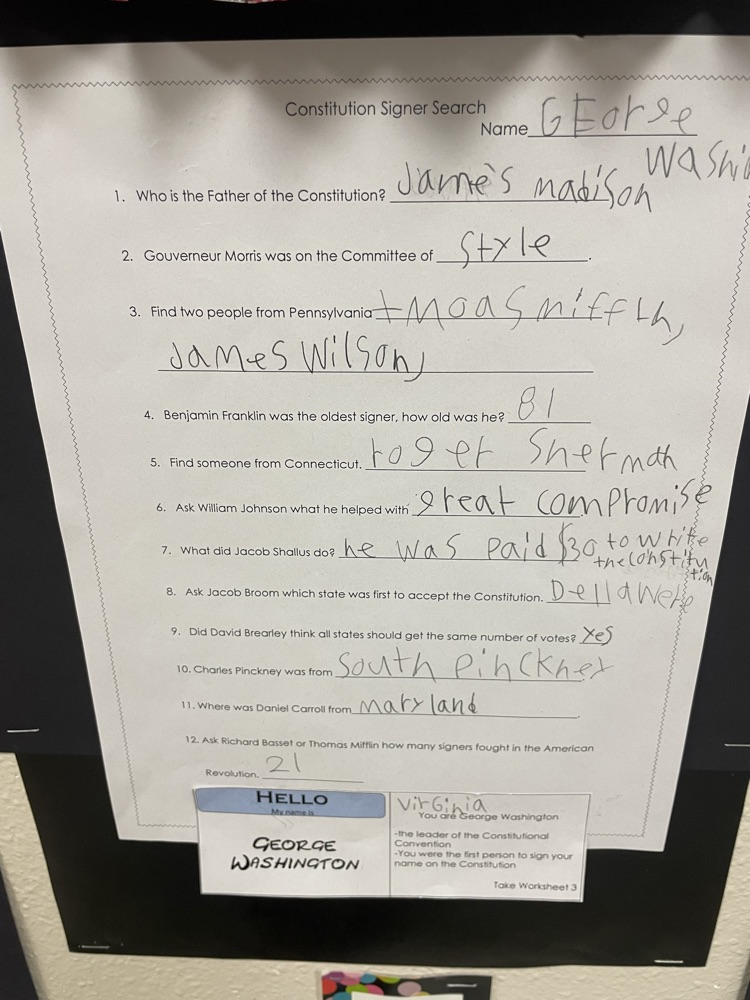 Constitution Signer Search
Name GEorge
Washi
1. Who is the Father of the Constitution? Jame's madison
2. Gouverneur Morris was on the Committee of Style.
3. Find two people from Pennsylvania tmoas miffln,
James Wilson,
4. Benjamin Franklin was the oldest signer, how old was he? 81
5. Find someone from Connecticut. roger Shermah
6. Ask William Johnson what he helped with great compromise
7. What did Jacob Shallus do? he was paid $30 to write
the constitu
tion
8. Ask Jacob Broom which state was first to accept the Constitution. Dellawere
9. Did David Brearley think all states should get the same number of votes? Yes
10. Charles Pinckney was from South Pinckney
11. Where was Daniel Carroll from maryland.
12. Ask Richard Basset or Thomas Mifflin how many signers fought in the American
Revolution. 21
HELLO
My name is
GEORGE
WASHINGTON
VirGinia
You are George Washington
-the leader of the Constitutional
Convention
-You were the first person to sign your
name on the Constitution
Take Worksheet 3